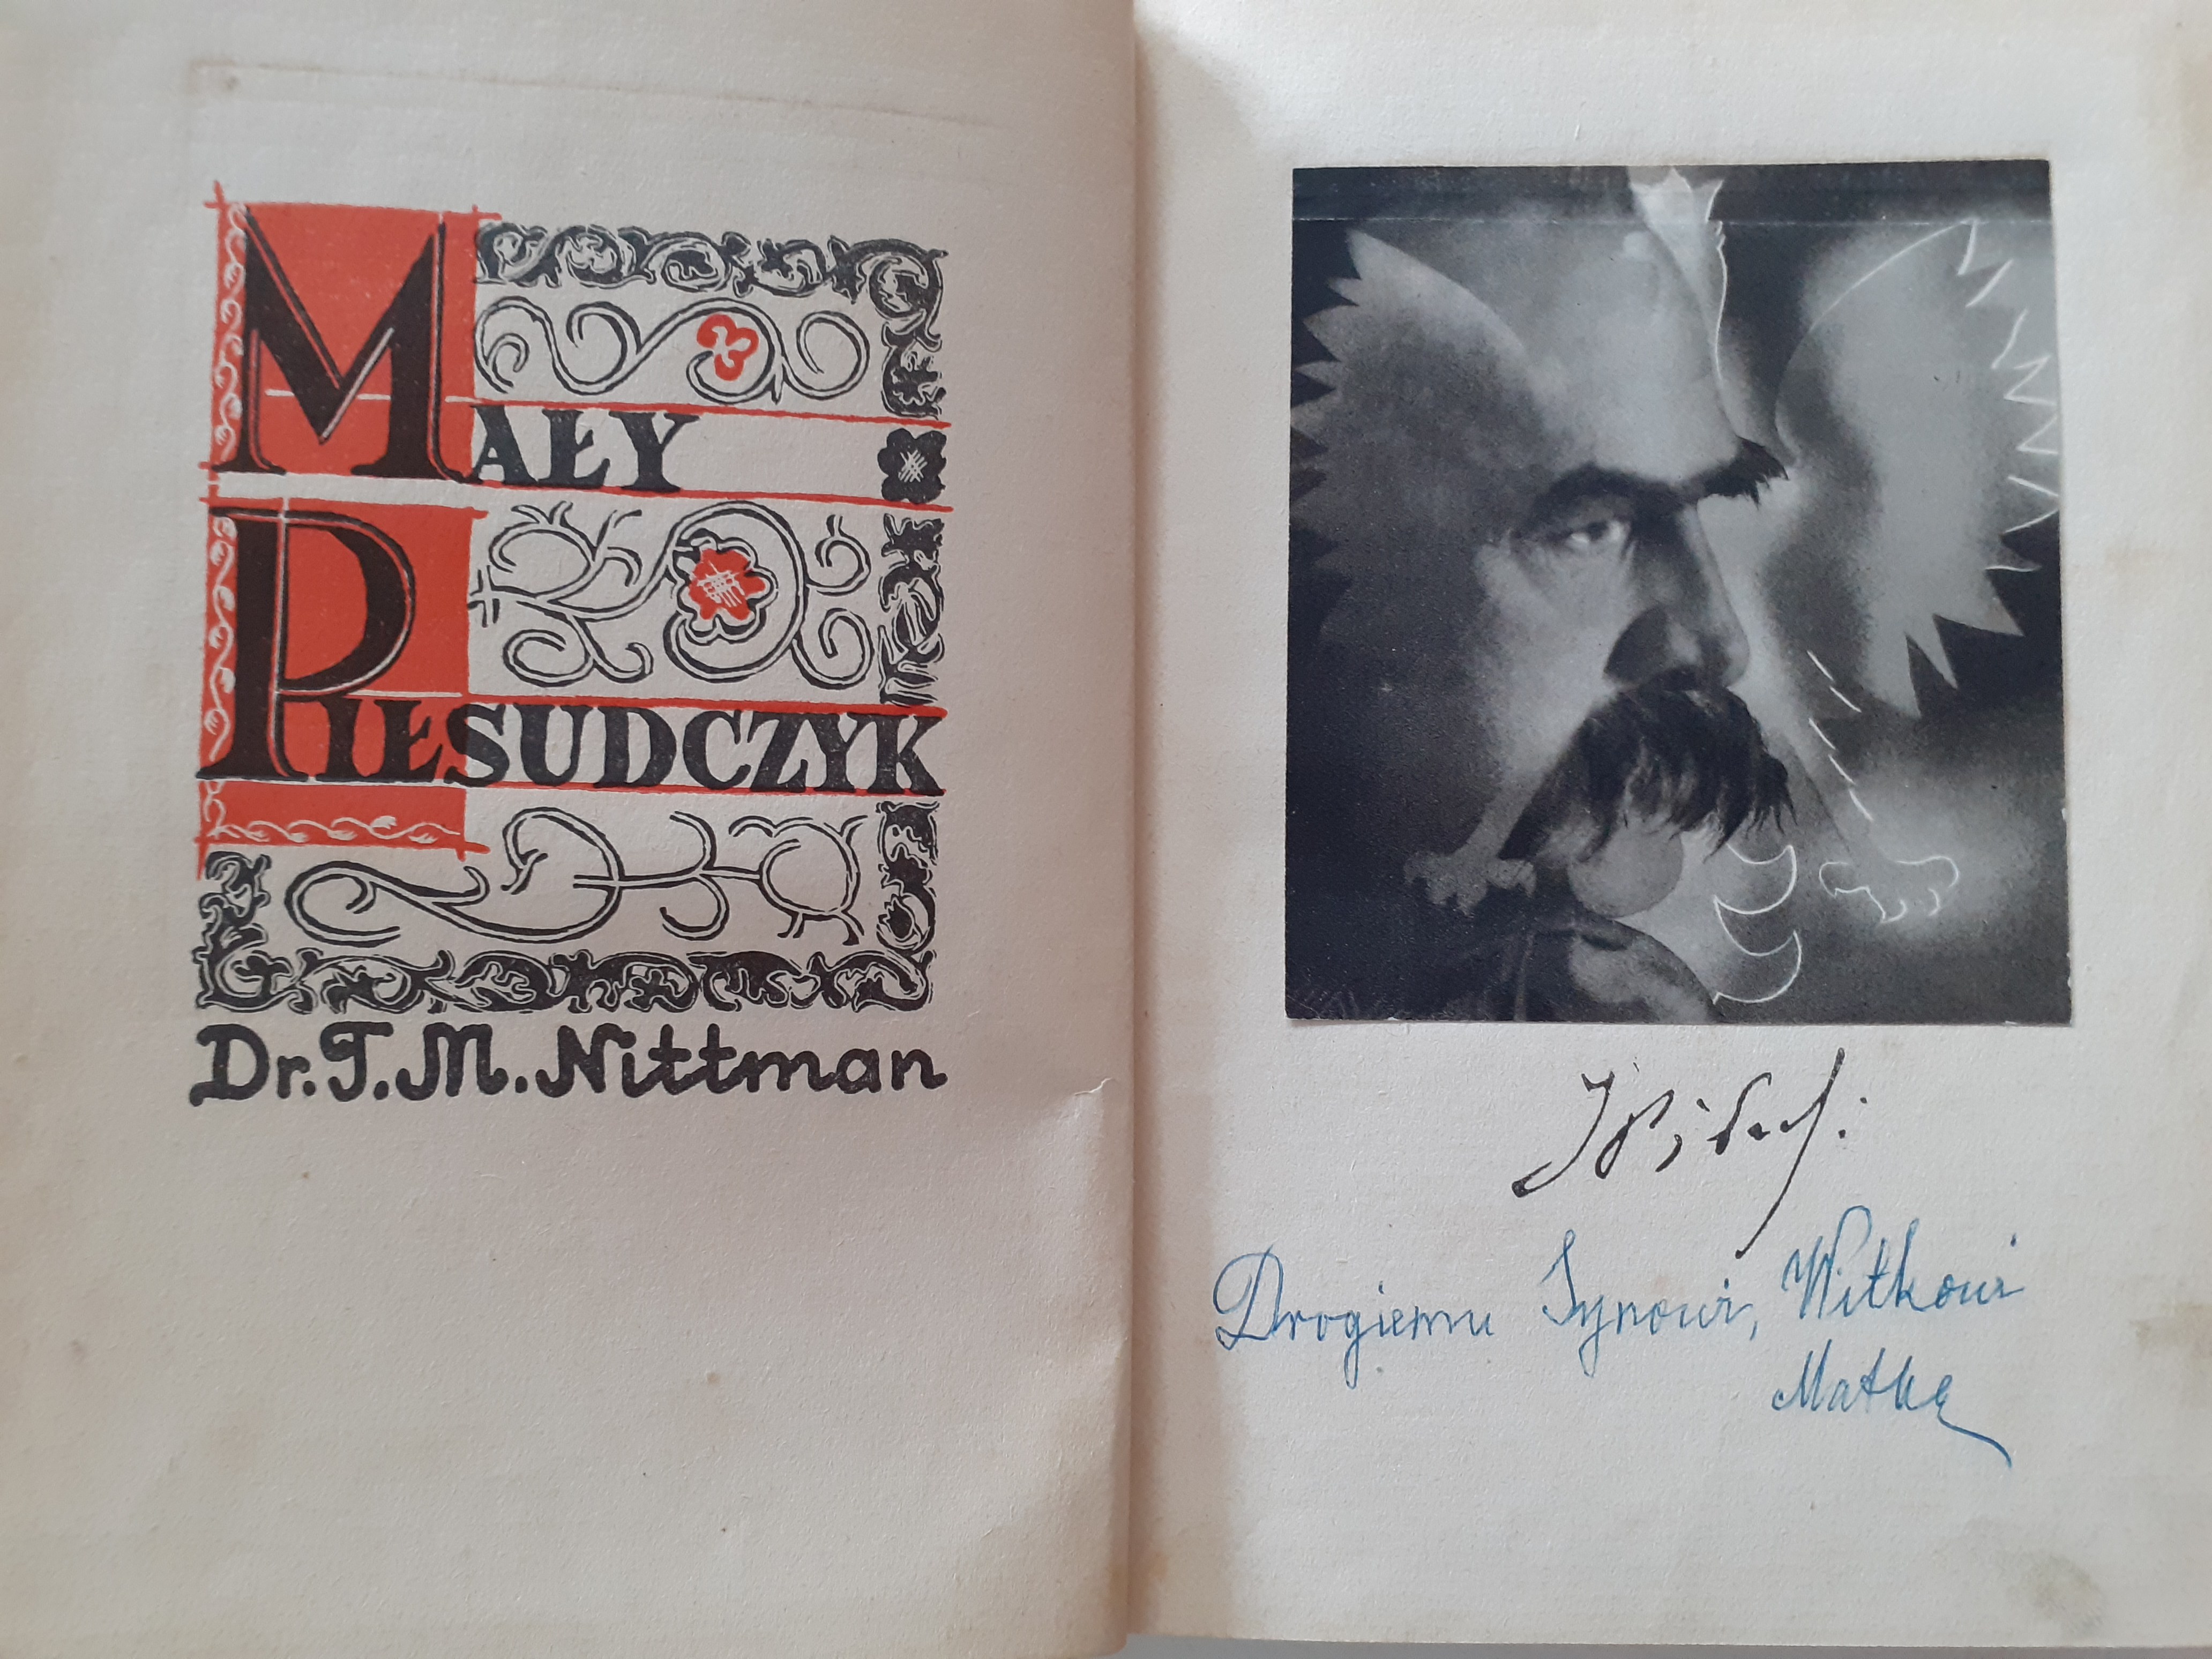 MAŁY
PIŁSUDCZYK
Dr. T. M. Nittman
Drogiemu Synowi, Witkowi
Matka